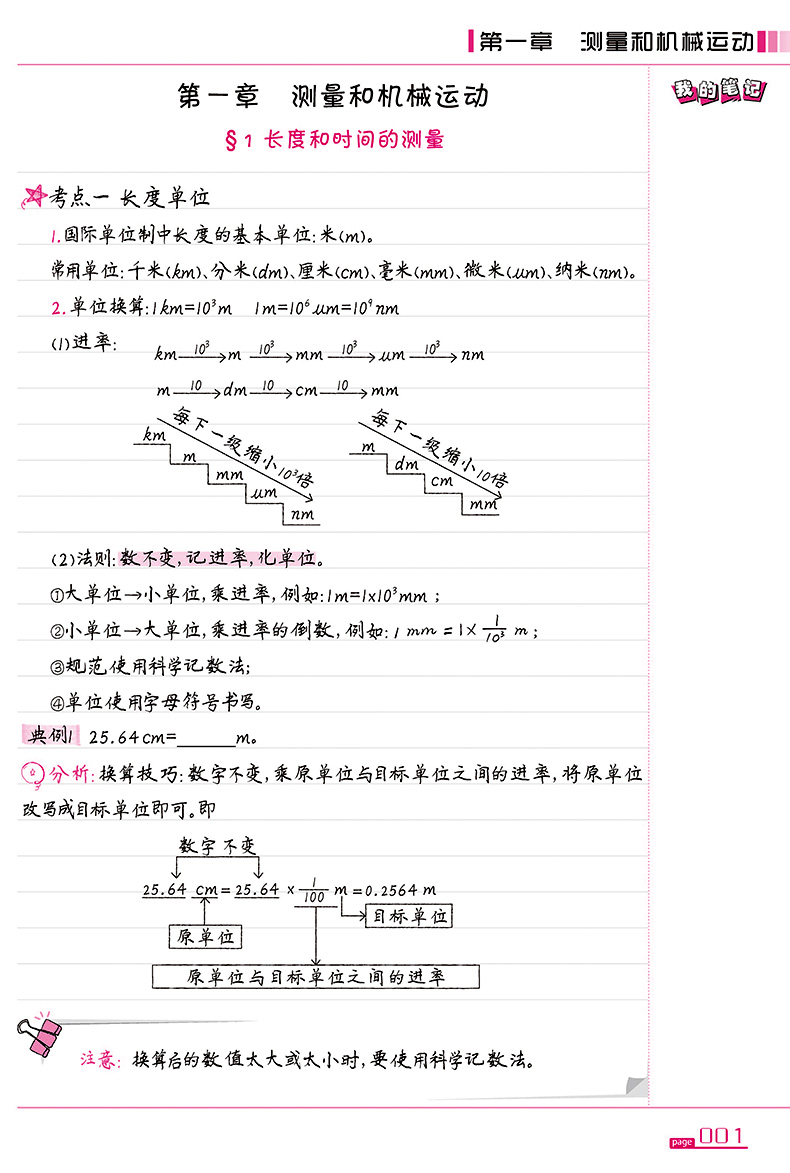 第一章 测量和机械运动
我的笔记
第一章 测量和机械运动
§1 长度和时间的测量
考点一 长度单位
1.国际单位制中长度的基本单位:米(m)。
常用单位:千米(km)、分米(dm)、厘米(cm)、毫米(mm)、微米(μm)、纳米(nm)。
2.单位换算:1km=10³m 1m=10⁶μm=10⁹nm
(1)进率:
km 10³→ m 10³→ mm 10³→ μm 10³→ nm
m 10→ dm 10→ cm 10→ mm
每下一级缩小10³倍
km
m
mm
μm
nm
每下一级缩小10倍
m
dm
cm
mm
(2)法则:数不变,记进率,化单位。
①大单位→小单位,乘进率,例如:1m=1×10³mm;
②小单位→大单位,乘进率的倒数,例如:1 mm=1×1/10³ m;
③规范使用科学记数法;
④单位使用字母符号书写。
典例1 25.64cm=______m。
分析:换算技巧:数字不变,乘原单位与目标单位之间的进率,将原单位
改写成目标单位即可。即
数字不变
25.64 cm=25.64×1/100 m=0.2564 m
目标单位
原单位
原单位与目标单位之间的进率
注意:换算后的数值太大或太小时,要使用科学记数法。
page 001